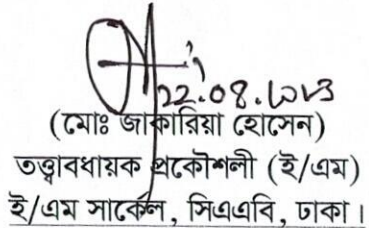 (মোঃ জাকারিয়া হোসেন)
তত্ত্বাবধায়ক প্রকৌশলী (ই/এম)
ই/এম সার্কেল, সিএএবি, ঢাকা।